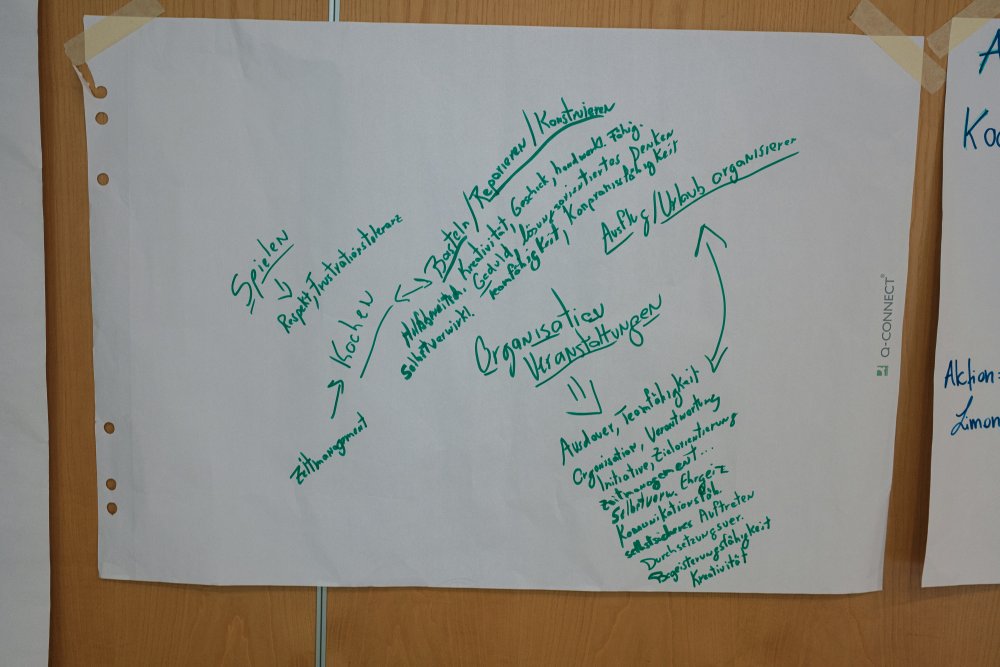 Spielen
Respekt, Frustrationstoleranz
Kochen
Zeitmanagement
Basteln/Reparieren/Konstruieren
Hilfsbereitsch. Kreativität, Geschick, handwerkl. Fähig.
Selbstverwirkl. Geduld, lösungsorientiertes Denken
Teamfähigkeit, Kompromissfähigkeit
Ausflug/Urlaub organisieren
Organisation
Veranstaltungen
Ausdauer, Teamfähigkeit
Organisation, Verantwortung
Initiative, Zielorientierung
Zeitmanagement...
Selbstverw. Ehrgeiz
Komunikationsfäh.
selbstsicheres Auftreten
Durchsetzungsver.
Begeisterungsfähigkeit
Kreativität
Q-CONNECT®
A
Koc
Aktion:
Limon